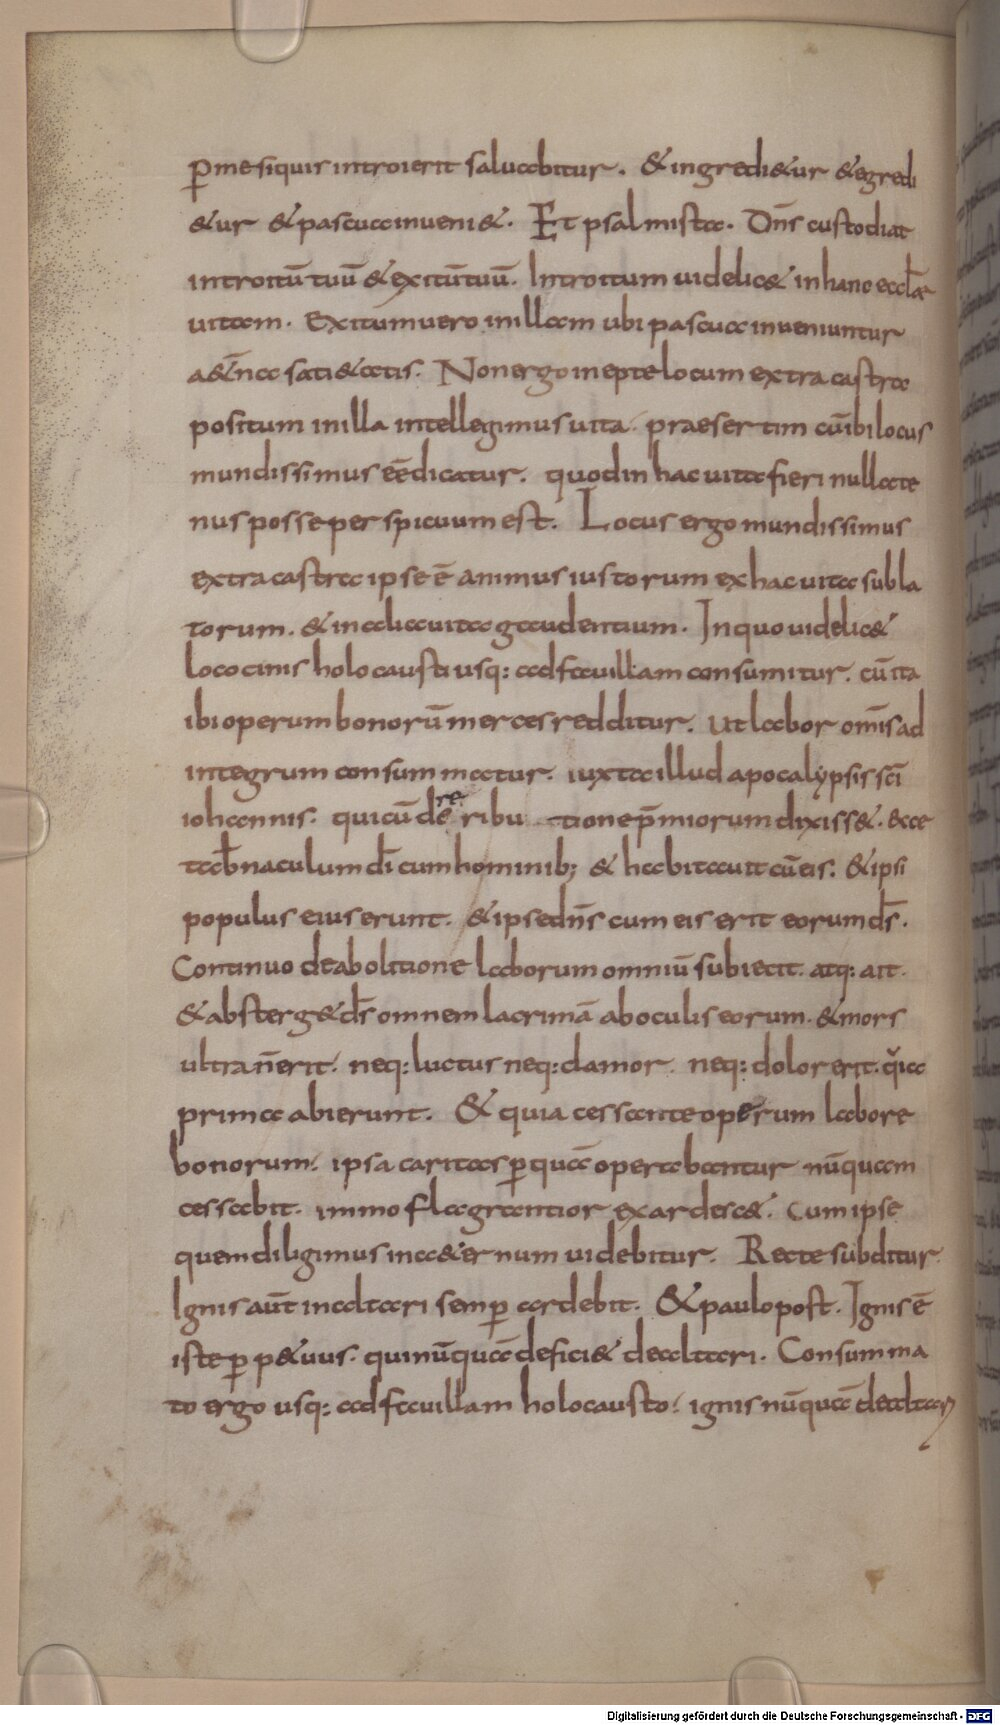 ꝑme siquis introierit saluabitur. & ingredi&ur & egredi
&ur & pascua inueni&. Et psalmista. Dn̄s custodiat
introitū tuū & exitū tuū. Introitum uidelic& in hanc eccl̄ae
uitam. Exitum uero in illam ubi pascua inueniuntur
a&̄na sati&atis. Non ergo inepte locum extra castra
positum in illa intellegimus uita. praesertim cū ibi locus
mundissimus eē dicatur. quod in hac uita fieri nullate
nus posse perspicuum est. Locus ergo mundissimus
extra castra ipse ē animus iustorum ex hac uita subla
torum. & in alia uita gaudentium. In quo uidelic&
loco cinis holocausti usq: ad fauillam consumitur. cū ita
ibi operum bonorū merces redditur. ut labor om̄is ad
integrum consummatur. iuxta illud apocalypsis sc̄i
iohannis. qui cū de re ribu tione p̄miorum dixiss&. ecce
tab̄naculum dī cum hominib; & habitauit cū eis. & ipsi
populus eius erunt. & ipse dn̄s cum eis erit eorum ds̄.
Continuo de abolitione laborum omniū subiecit. atq: ait.
& absterg& ds̄ omnem lacrimā ab oculis eorum. & mors
ultra n̄ erit. neq: luctus neq: clamor. neq: dolor erit. q̌ia
prima abierunt. & quia cessante operum labore
bonorum. ipsa caritas ꝑ quā operabantur nūquam
cessabit. immo flagrantior exardesc&. Cum ipse
quem diligimus in a&ernum uidebitur. Recte subditur.
Ignis aūt in altari semꝑ ardebit. & paulo post. Ignis ē
iste ꝑp&uus. qui nūquā defici& de altari. Consumma
to ergo usq: ad fauillam holocausto. ignis nūquā de altari
Digitalisierung gefördert durch die Deutsche Forschungsgemeinschaft - DFG